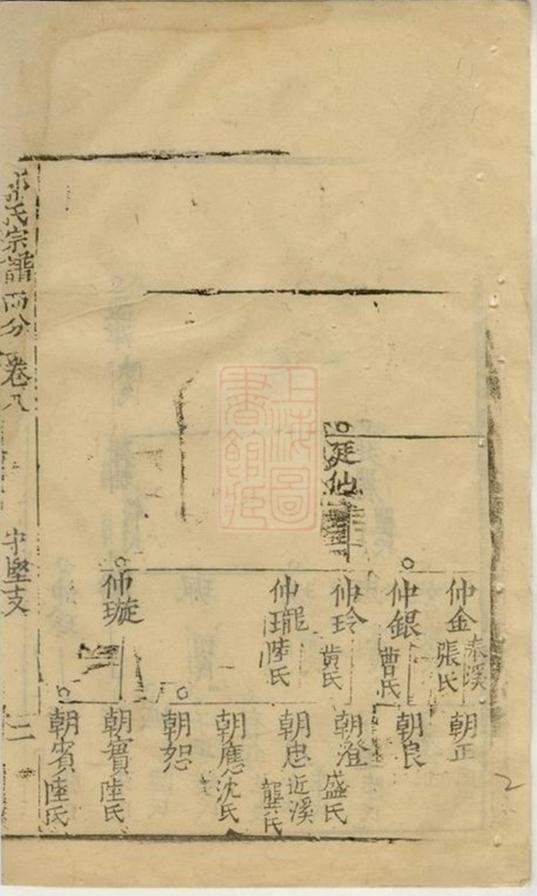 延仙
仲金 泰溪 張氏
仲銀 曹氏
仲玲 黄氏
仲瓏 陸氏
仲璇
朝正
朝良
朝澄 盛氏
朝忠 近溪 龔氏
朝應 沈氏
朝恕
朝實 陸氏
朝賓 陸氏
氏宗譜 西分 卷八
守堅支
二
上海圖書館藏
2